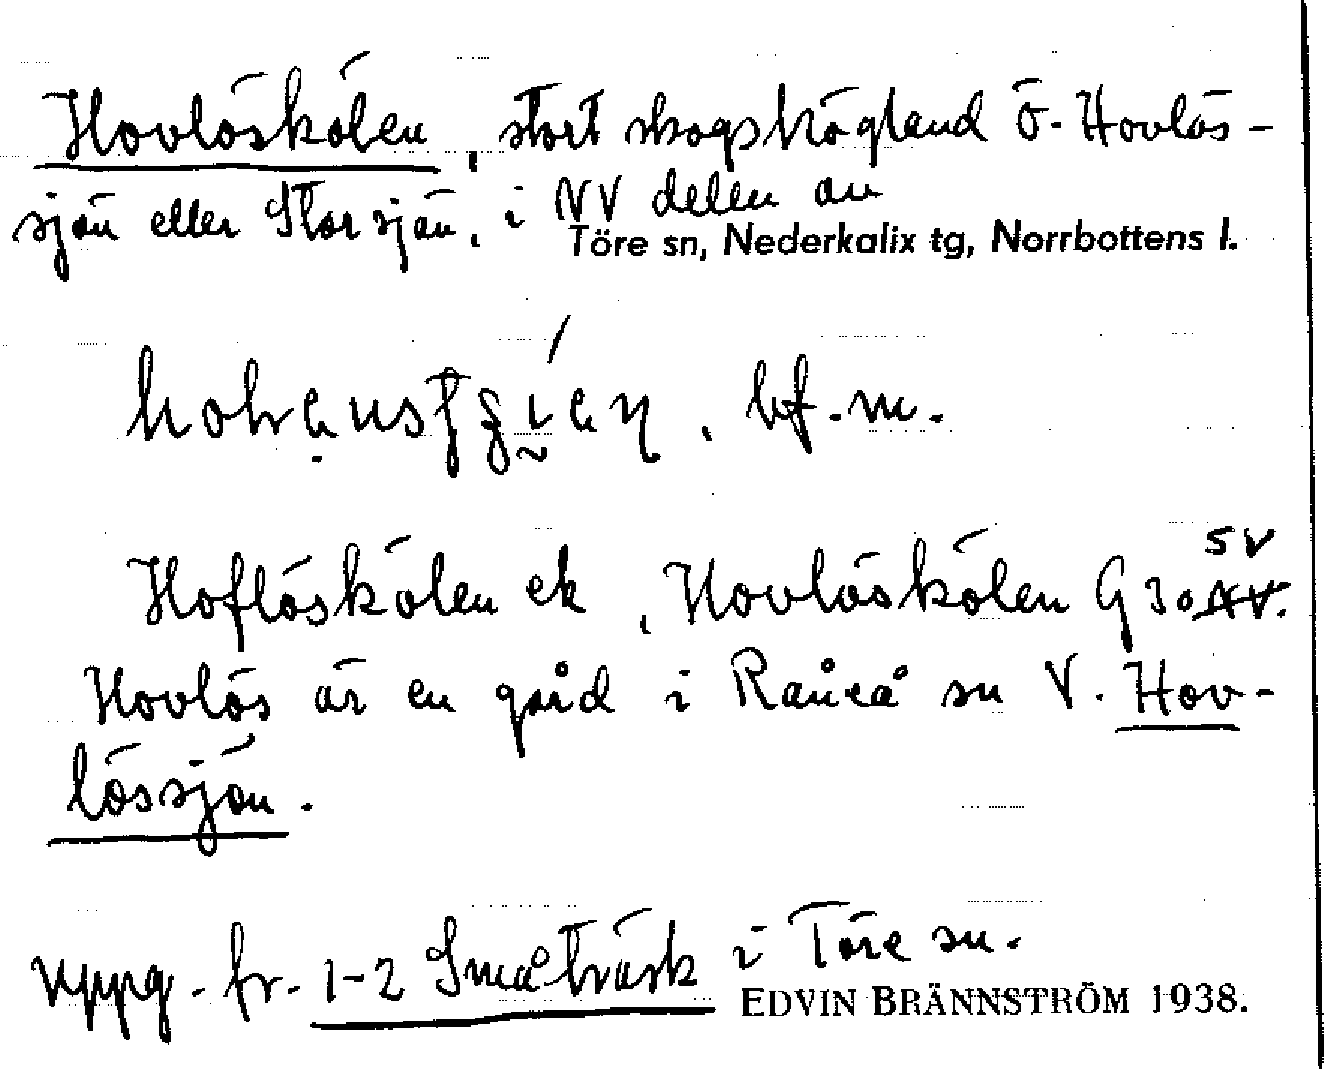 Hovlöskölen, stort skogshögland ö. Hovlös-
sjön eller Storsjön, i NV delen av
Töre sn, Nederkalix tg, Norrbottens l.
bf. m.
Hoflöskölen ek, Hovlöskölen G 30 SV
Hovlös är en gård i Råneå sn V. Hov-
lössjön.
uppg. fr. 1-2 Småträsk i Töre sn.
EDVIN BRÄNNSTRÖM 1938.